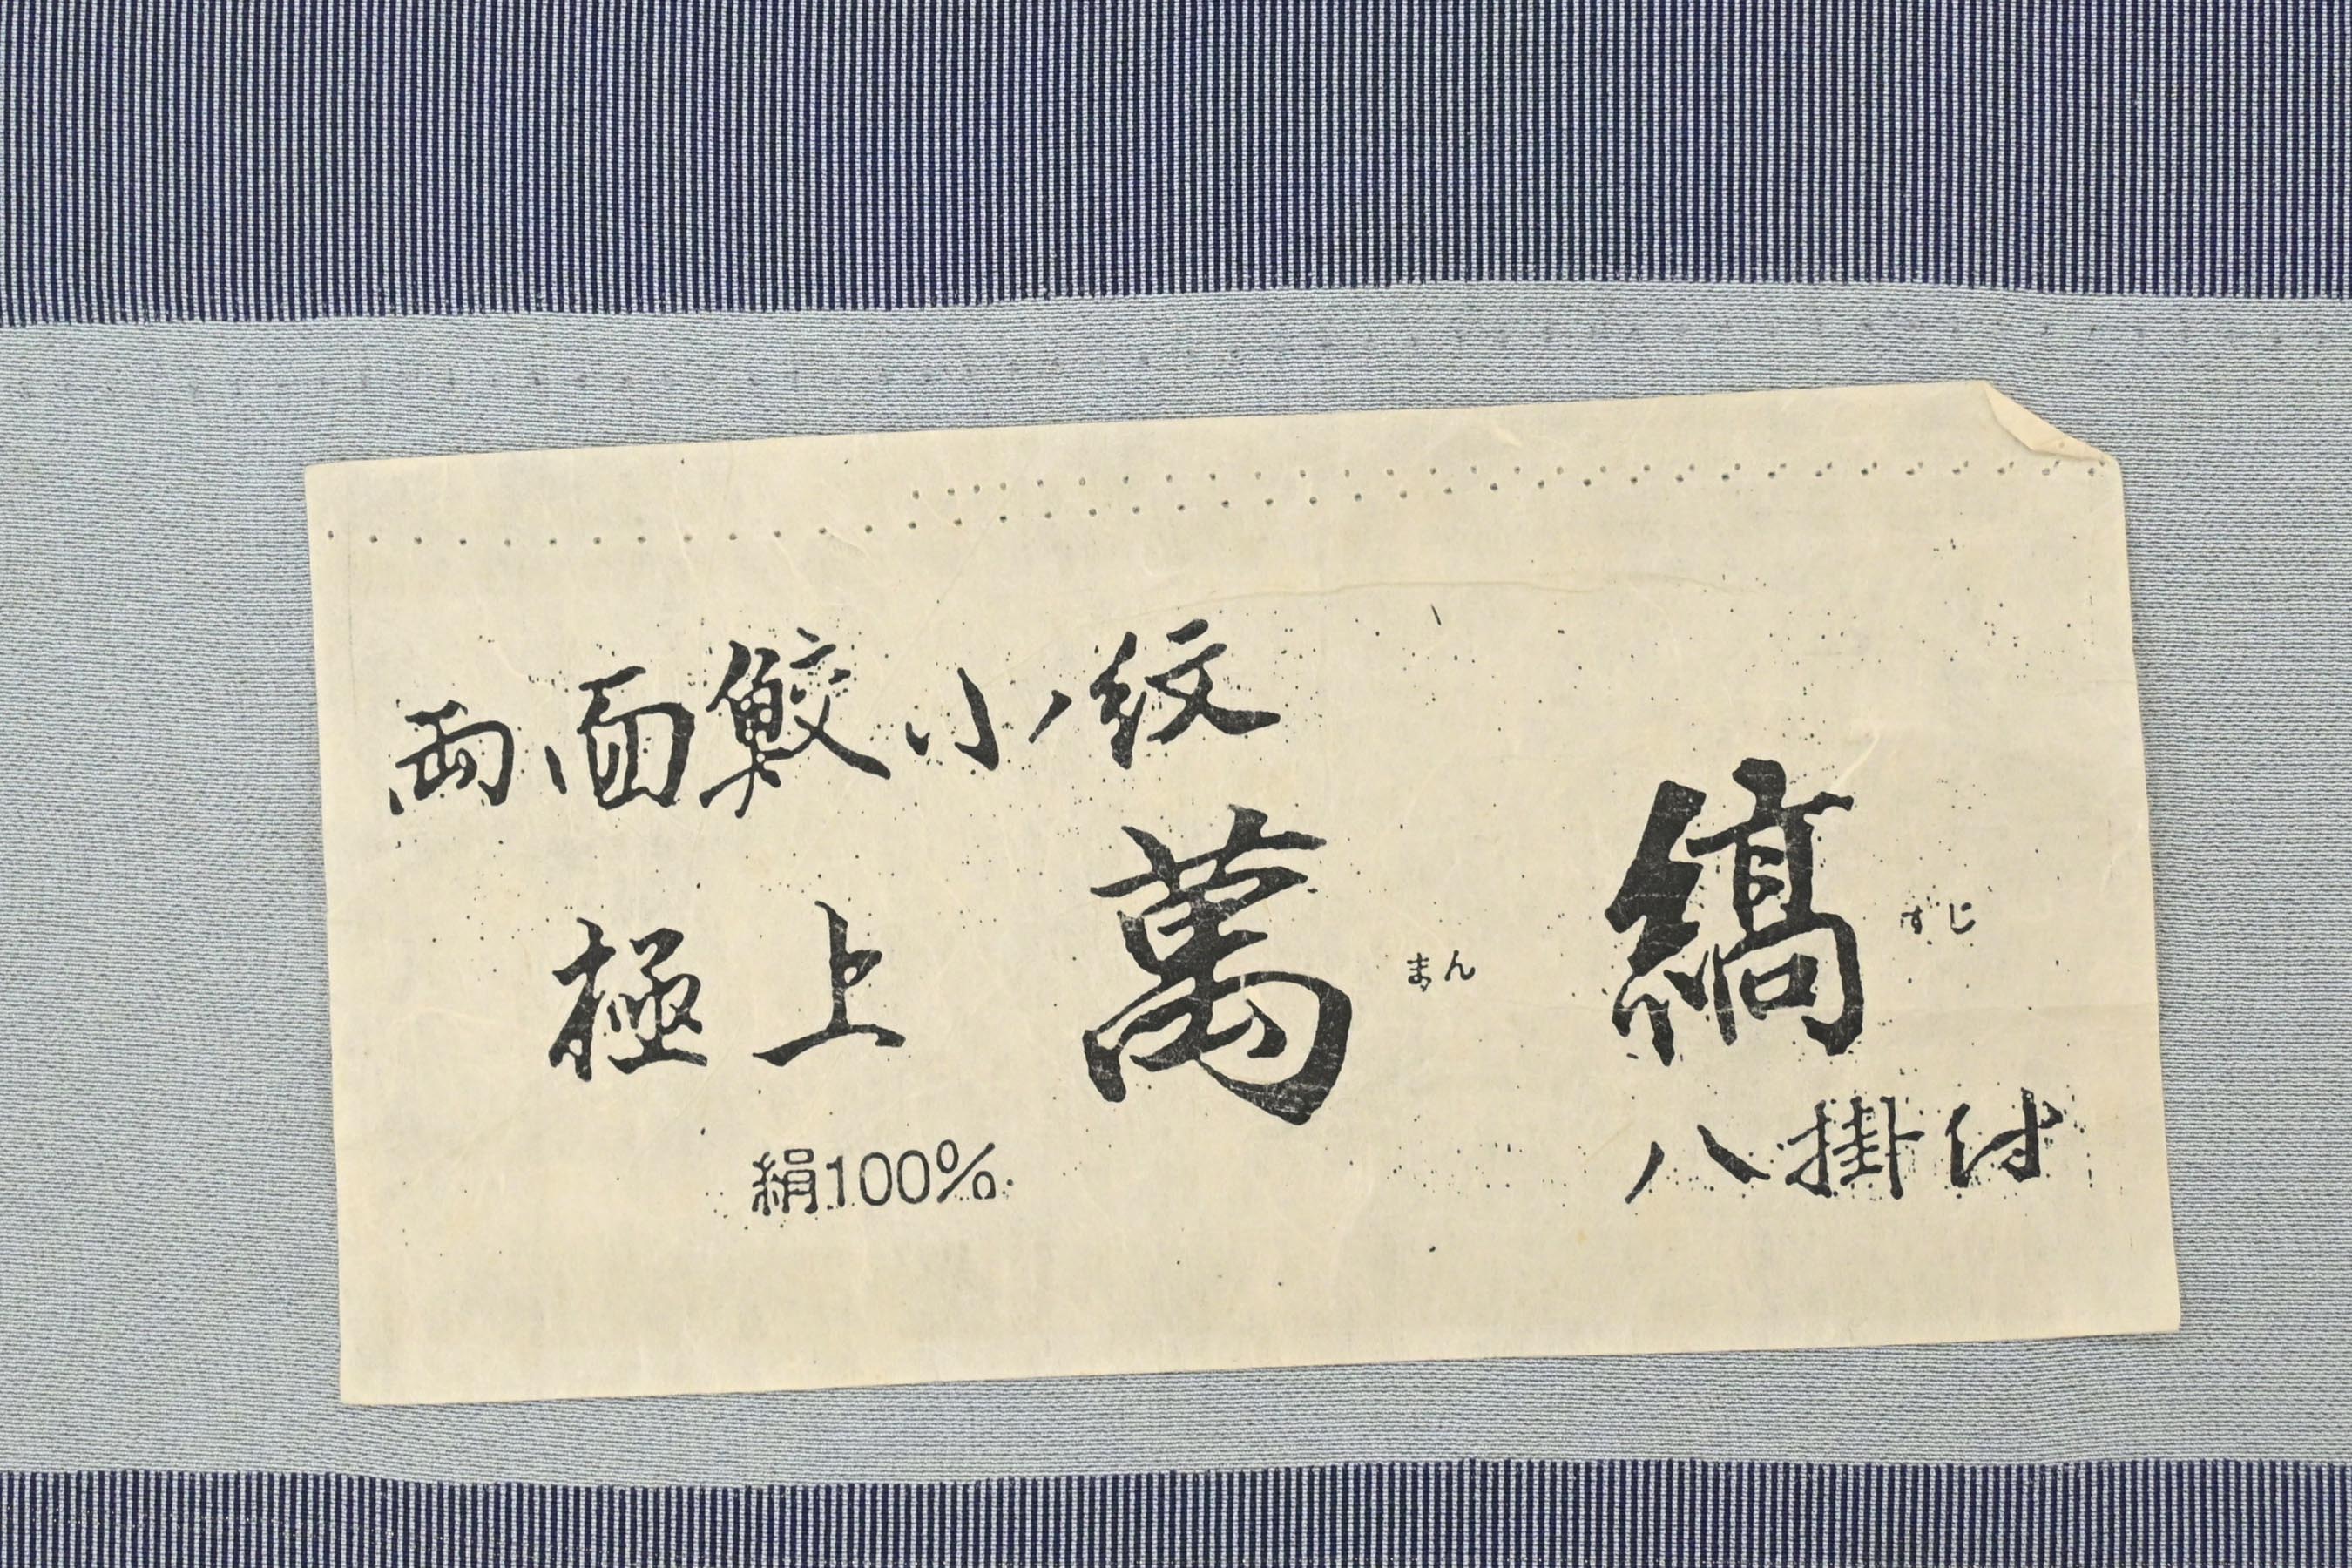 両面鮫小紋
極上 萬 まん 縞 すじ
絹100%
八掛付